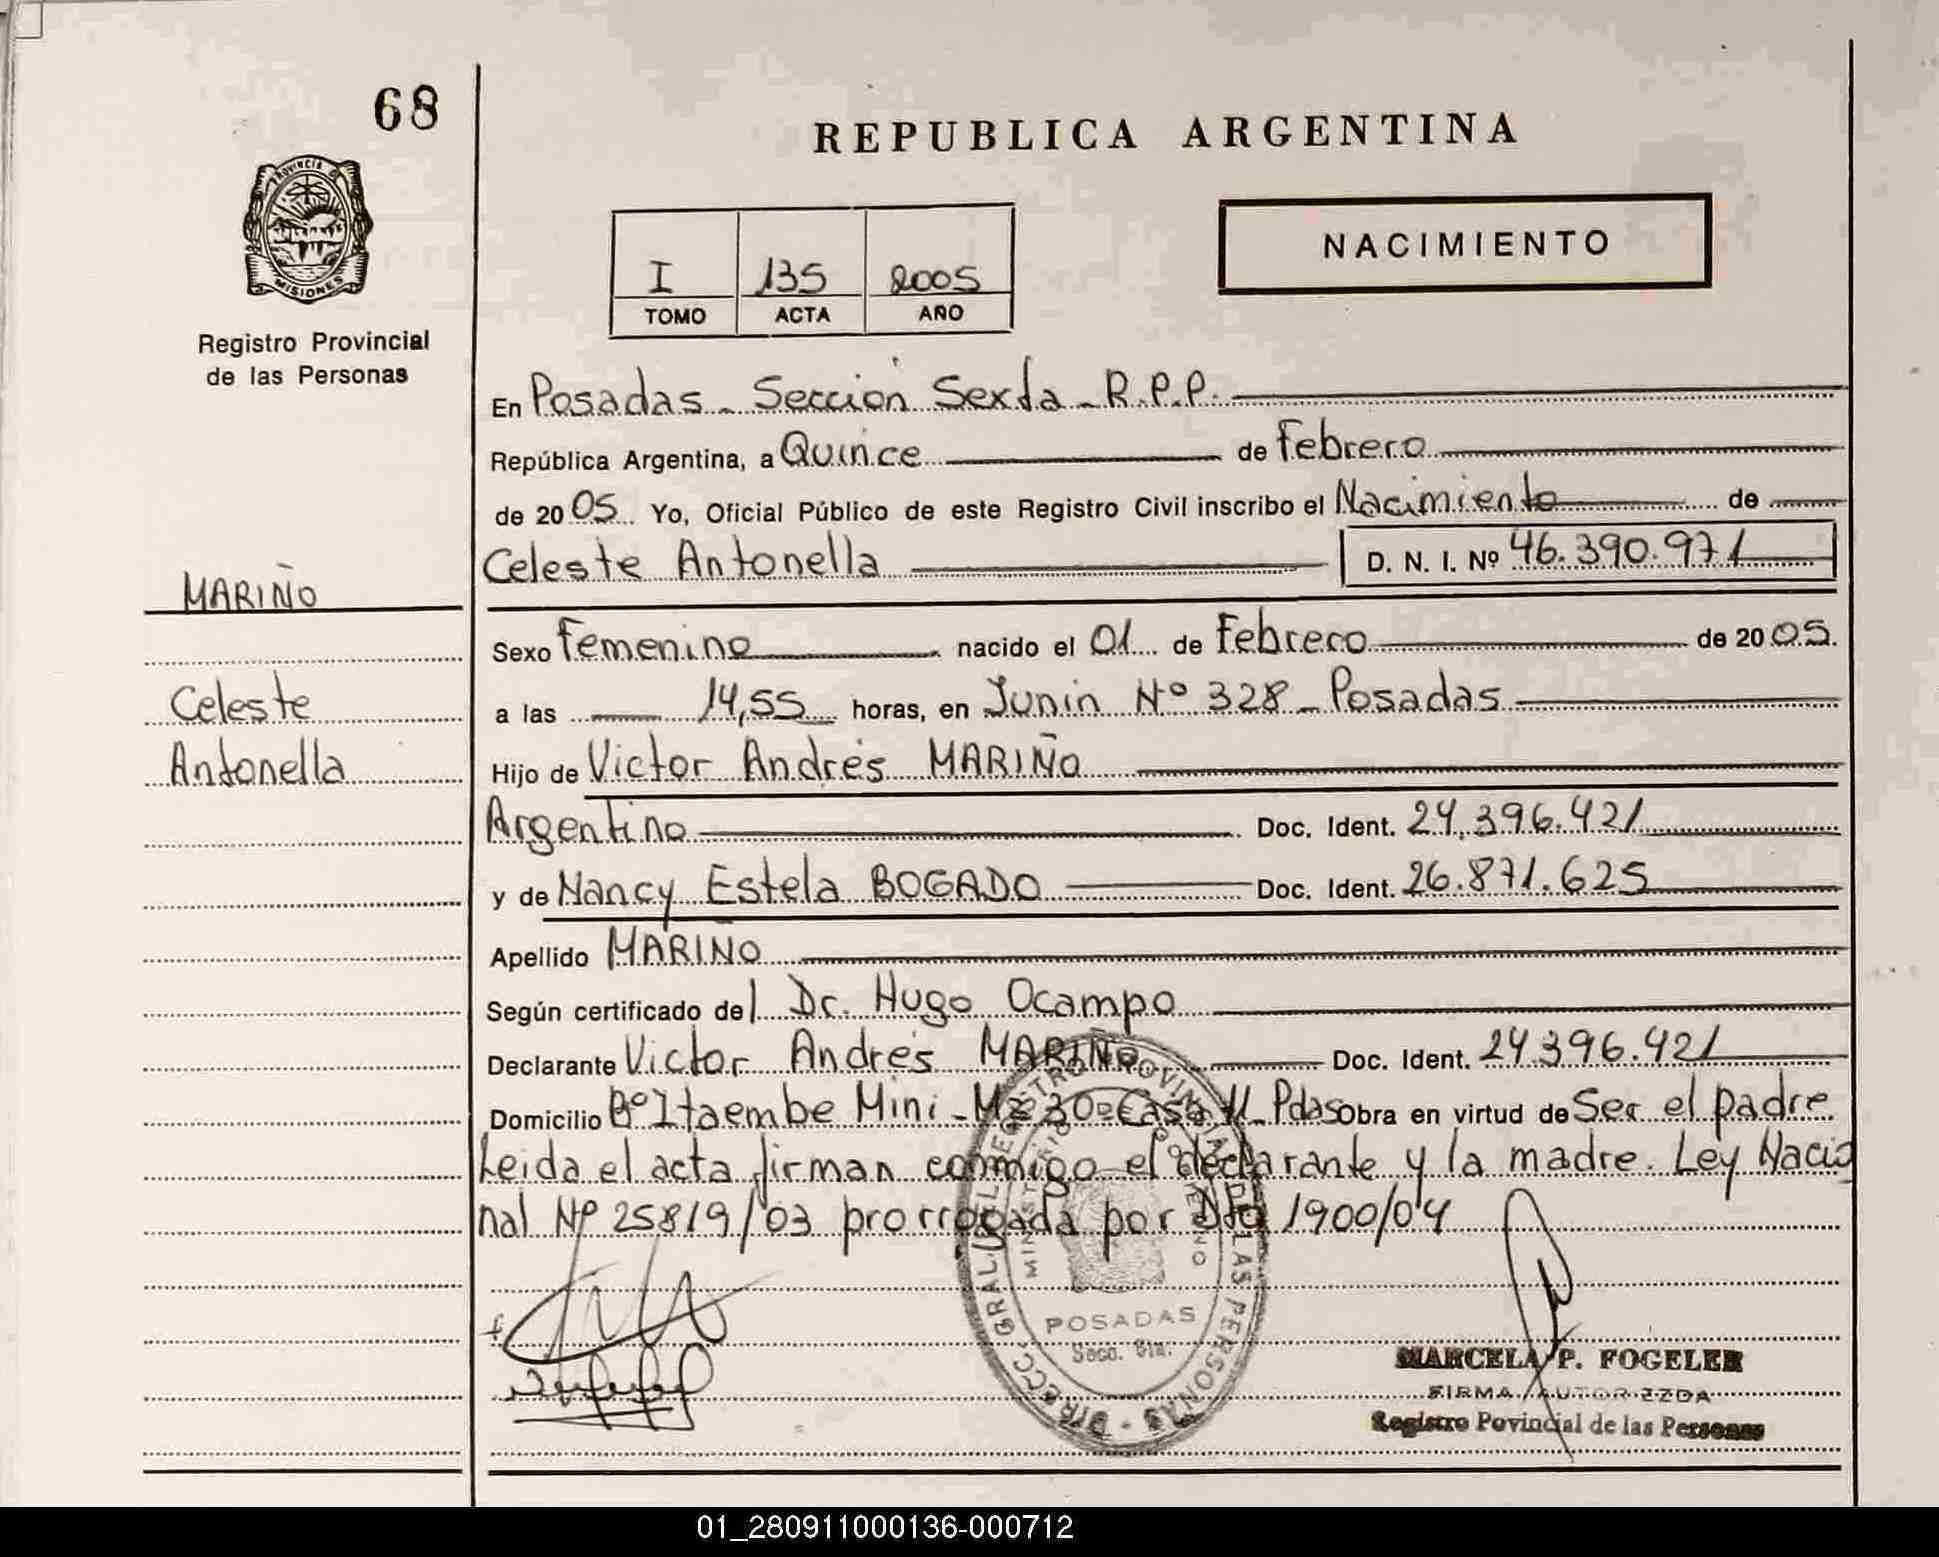 68
REPUBLICA ARGENTINA
PROVINCIA DE
MISIONES
Registro Provincial
de las Personas
I 135 2005
TOMO ACTA AÑO
NACIMIENTO
En Posadas - Sección Sexta - R.P.P.
República Argentina, a Quince de Febrero
de 2005 Yo, Oficial Público de este Registro Civil inscribo el Nacimiento de
Celeste Antonella D. N. I. Nº 46.390.971
MARIÑO
Sexo Femenino nacido el 01 de Febrero de 2005.
Celeste
a las 14,55 horas, en Junín Nº 328 - Posadas
Antonella
Hijo de Victor Andrés MARIÑO
Argentino Doc. Ident. 24.396.421
y de Nancy Estela BOGADO Doc. Ident. 26.871.625
Apellido MARIÑO
Según certificado del Dr. Hugo Ocampo
Declarante Victor Andrés MARIÑO Doc. Ident. 24.396.421
Domicilio Bº Itaembe Mini - Mz 30 - Casa 11 Pdas Obra en virtud de Ser el padre
Leida el acta firman conmigo el declarante y la madre. Ley Nacio
nal Nº 25819/03 prorrogada por Dto 1900/04
DIRECC. GRAL. DEL REGISTRO PROVINCIAL DE LAS PERSONAS
MINISTERIO DE GOBIERNO
POSADAS
Secc. 6ta.
MARCELA P. FOGELER
FIRMA AUTORIZZDA
Registro Povincial de las Personas
01_280911000136-000712